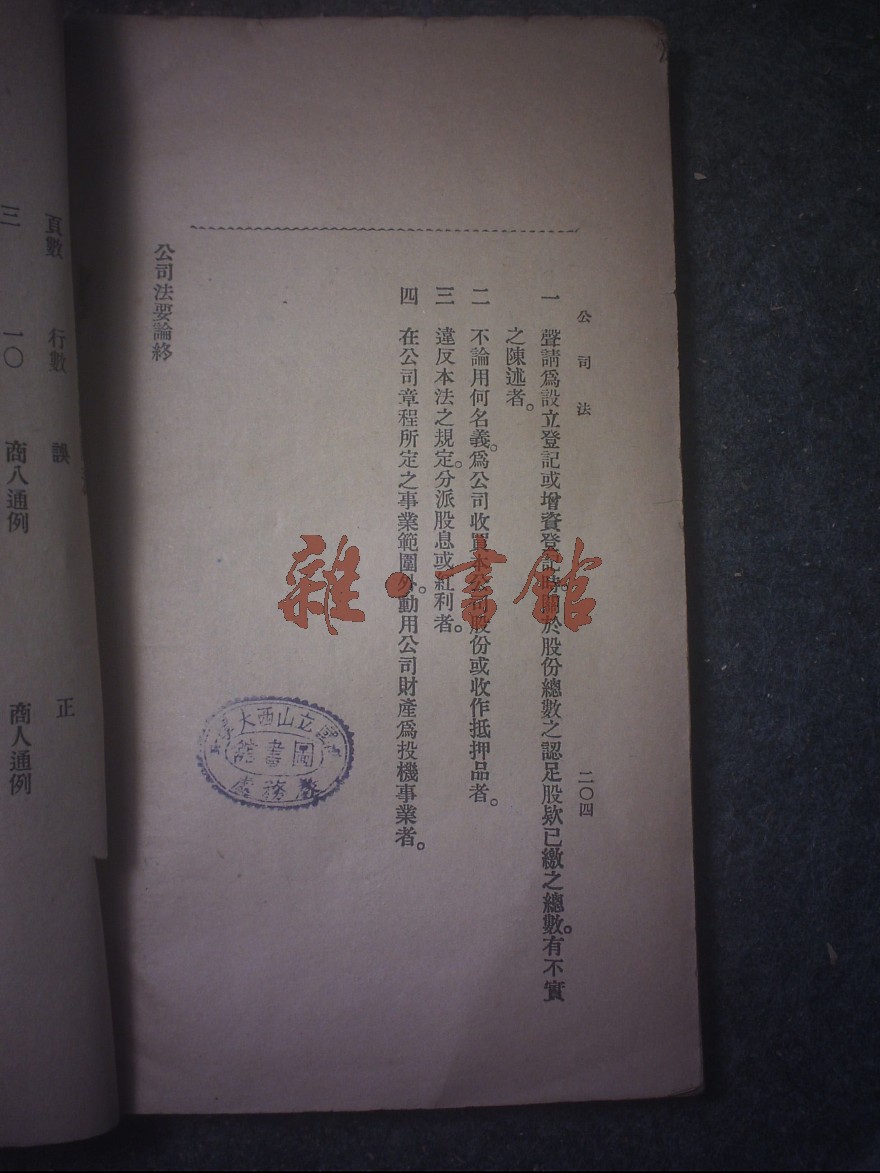 公司法
二〇四
一 聲請爲設立登記或增資登記時。關於股份總數之認足股欵已繳之總數。有不實
之陳述者。
二 不論用何名義。爲公司收買本公司股份或收作抵押品者。
三 違反本法之規定。分派股息或紅利者。
四 在公司章程所定之事業範圍外。動用公司財產爲投機事業者。
公司法要論終
雜·書館
國立山西大學
圖書館
務處
頁數 行數 誤 正
三 一〇 商八通例 商人通例